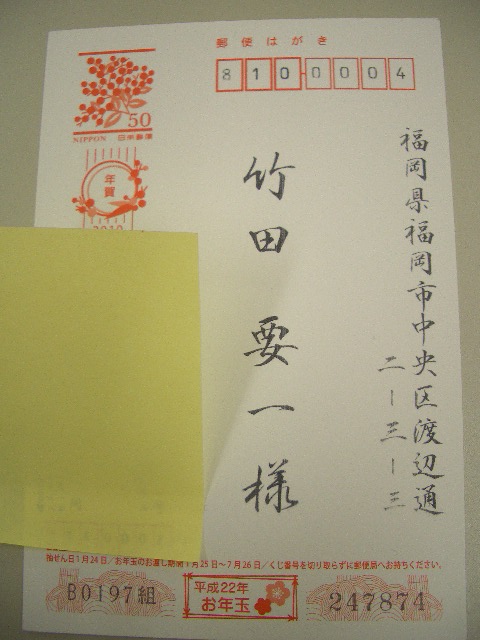 郵便はがき
810-0004
50
NIPPON 日本郵便
年賀
2010
福岡県福岡市中央区渡辺通
二ー三ー三
竹田 要一様
抽せん日1月24日/お年玉のお渡し期間1月25日~7月26日/くじ番号を切り取らずに郵便局へお持ちください。
B0197組
平成22年
お年玉
247874